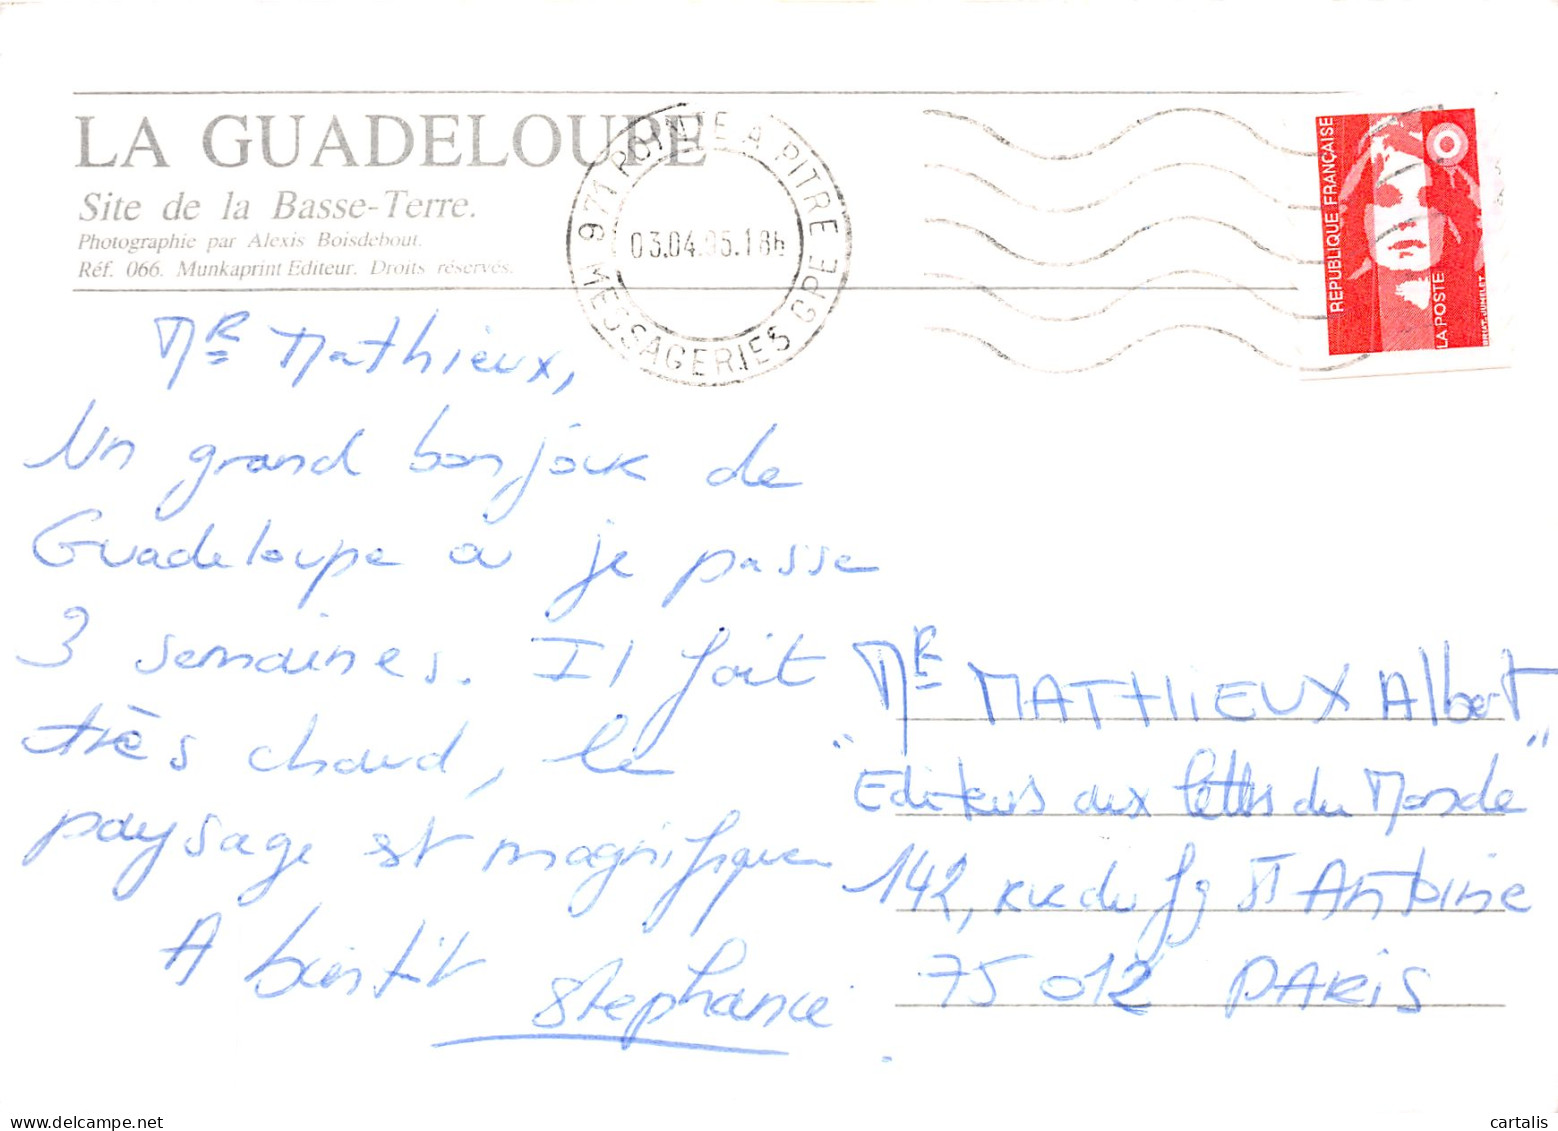 LA GUADELOUPE
Site de la Basse-Terre.
Photographie par Alexis Boisdebout.
Réf. 066. Munkaprint Editeur. Droits réservés.
971 POINTE A PITRE
03.04.95.18h
MESSAGERIES GPE
REPUBLIQUE FRANÇAISE
LA POSTE
BRIAT-JUMELET
MR Mathieux,
Un grand bonjour de
Guadeloupe ou je passe
3 semaines. Il fait
très chaud, le
paysage est magnifique
A bientôt
Stephanie
MR MATHIEUX Albert
"Editeurs aux lettres du Monde"
142, rue du fg St Antoine
75012 PARIS
cartalis